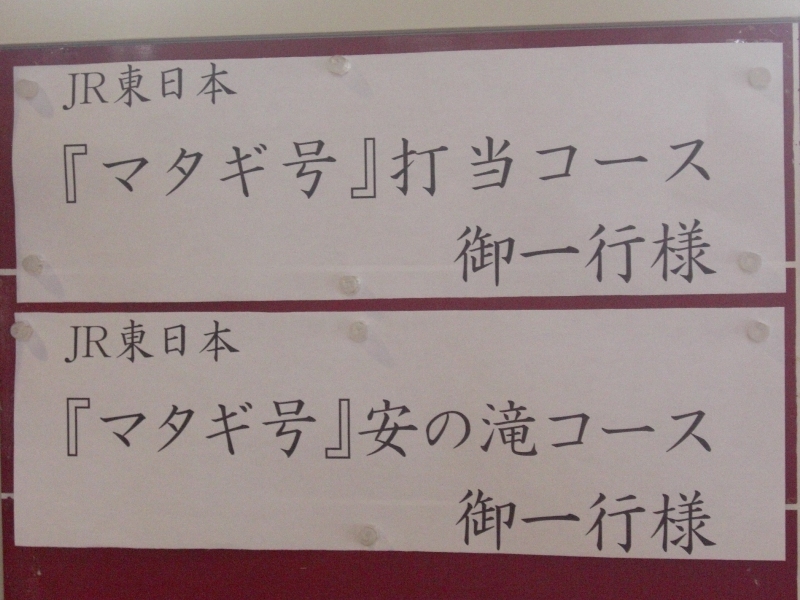 JR東日本
『マタギ号』打当コース
御一行様
JR東日本
『マタギ号』安の滝コース
御一行様